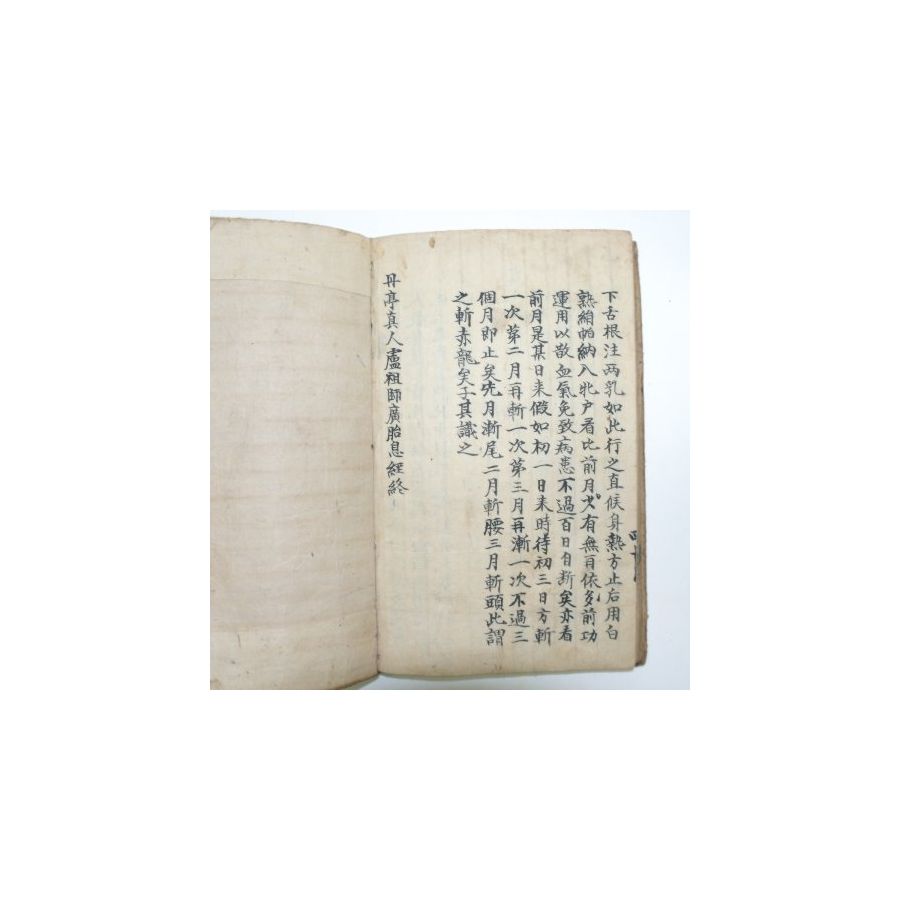 下舌根注两乳如此行之直候身熱方止后用白
熟絹帕納入牝戶看比前月欠有無百依多前功
運用以散血氣免致病患不過百日自斷矣亦看
前月是某日来假如初一日来時待初三日方斬
一次第二月再斬一次第三月再漸一次不過三
個月即止矣先月漸尾二月斬腰三月斬頭此謂
之斬赤龍矣子其識之
丹亭真人盧祖師廣胎息經終